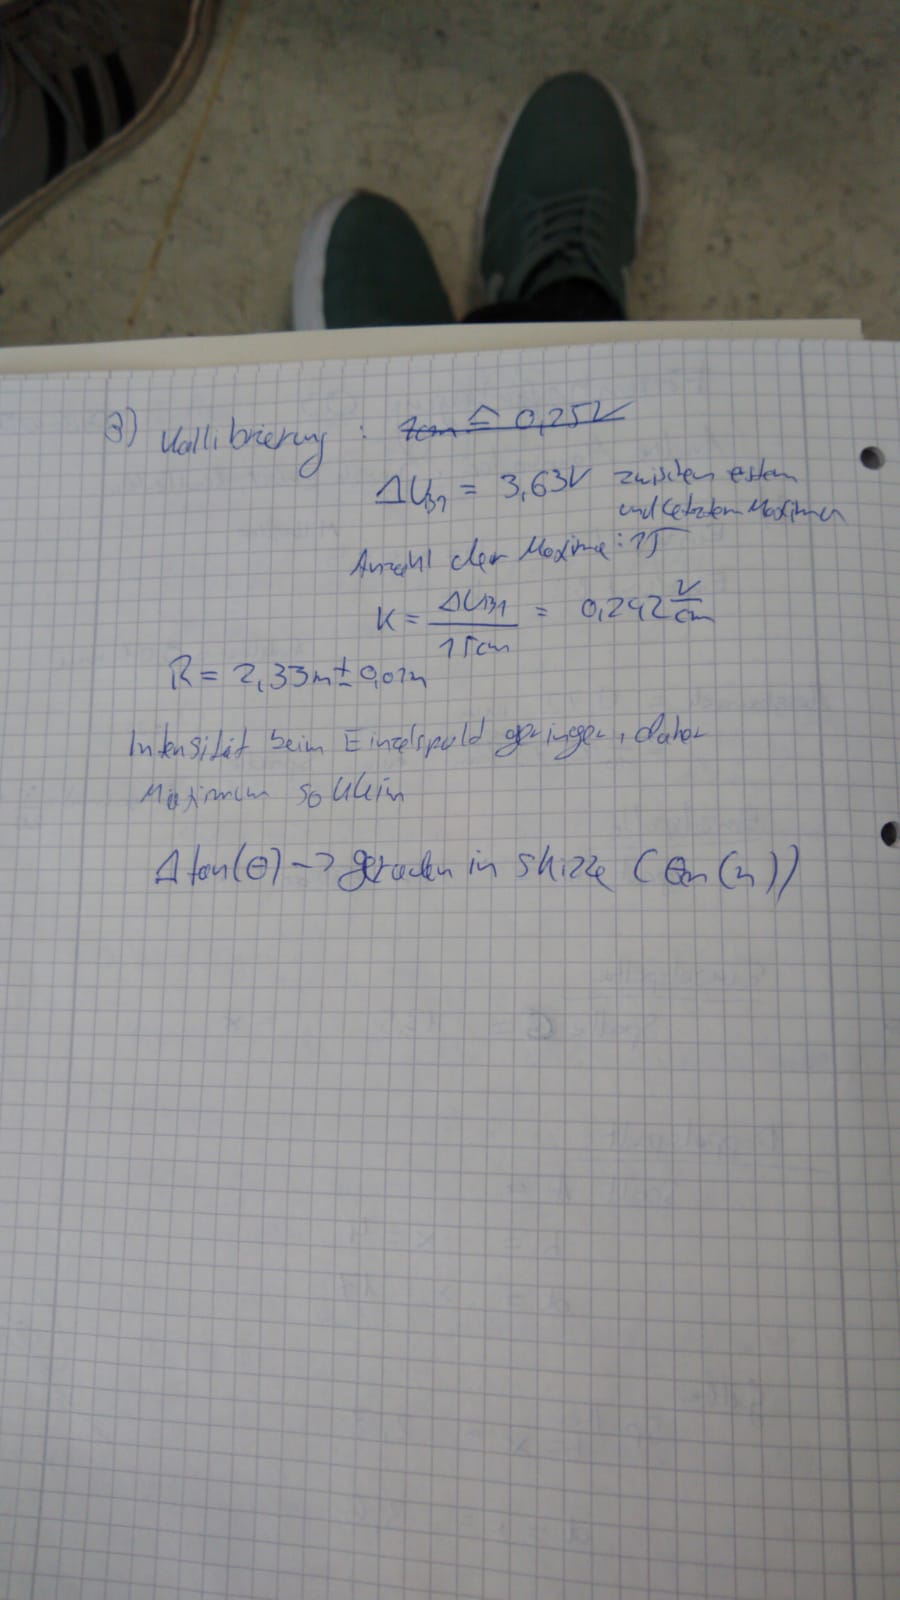 3) Kallibrierung : 1cm ≙ 0,25V
ΔU_B1 = 3,63V zwischen erstem
und letztem Maximum
Anzahl der Maxima: 15
K = ΔU_B1 / 15cm = 0,242 V/cm
R = 2,33m ± 0,01m
Intensität beim Einzelspald geringer, daher
Maximum so klein
Δtan(θ) -> geraden in Skizze (θn(n))